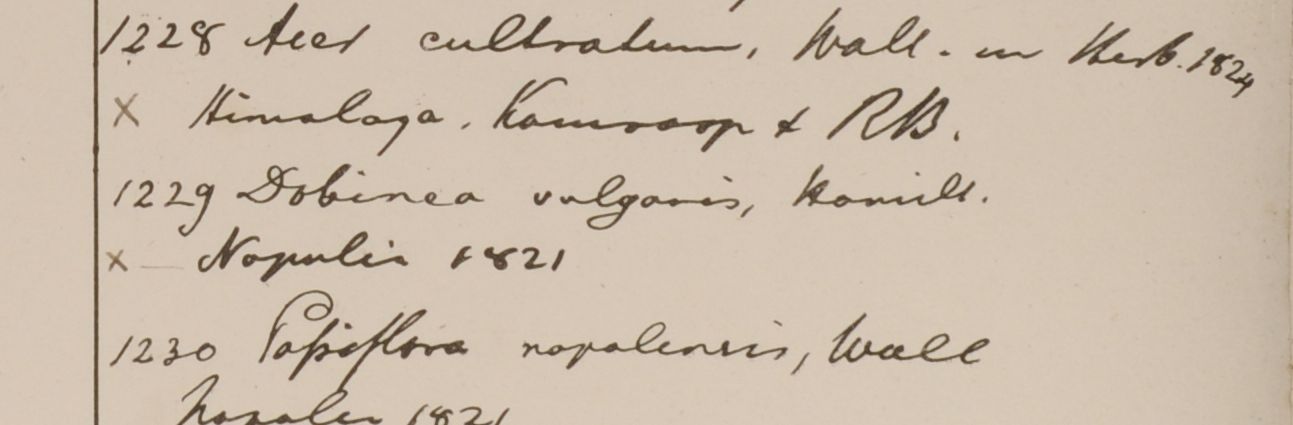 1228 Acer cultratum, Wall. in Herb. 1824
× Himalaya. Kamroop & RB.
1229 Dobinea vulgaris, Hamilt.
× — Napalia 1821
1230 Passiflora napalensis, Wall
Napalia 1821